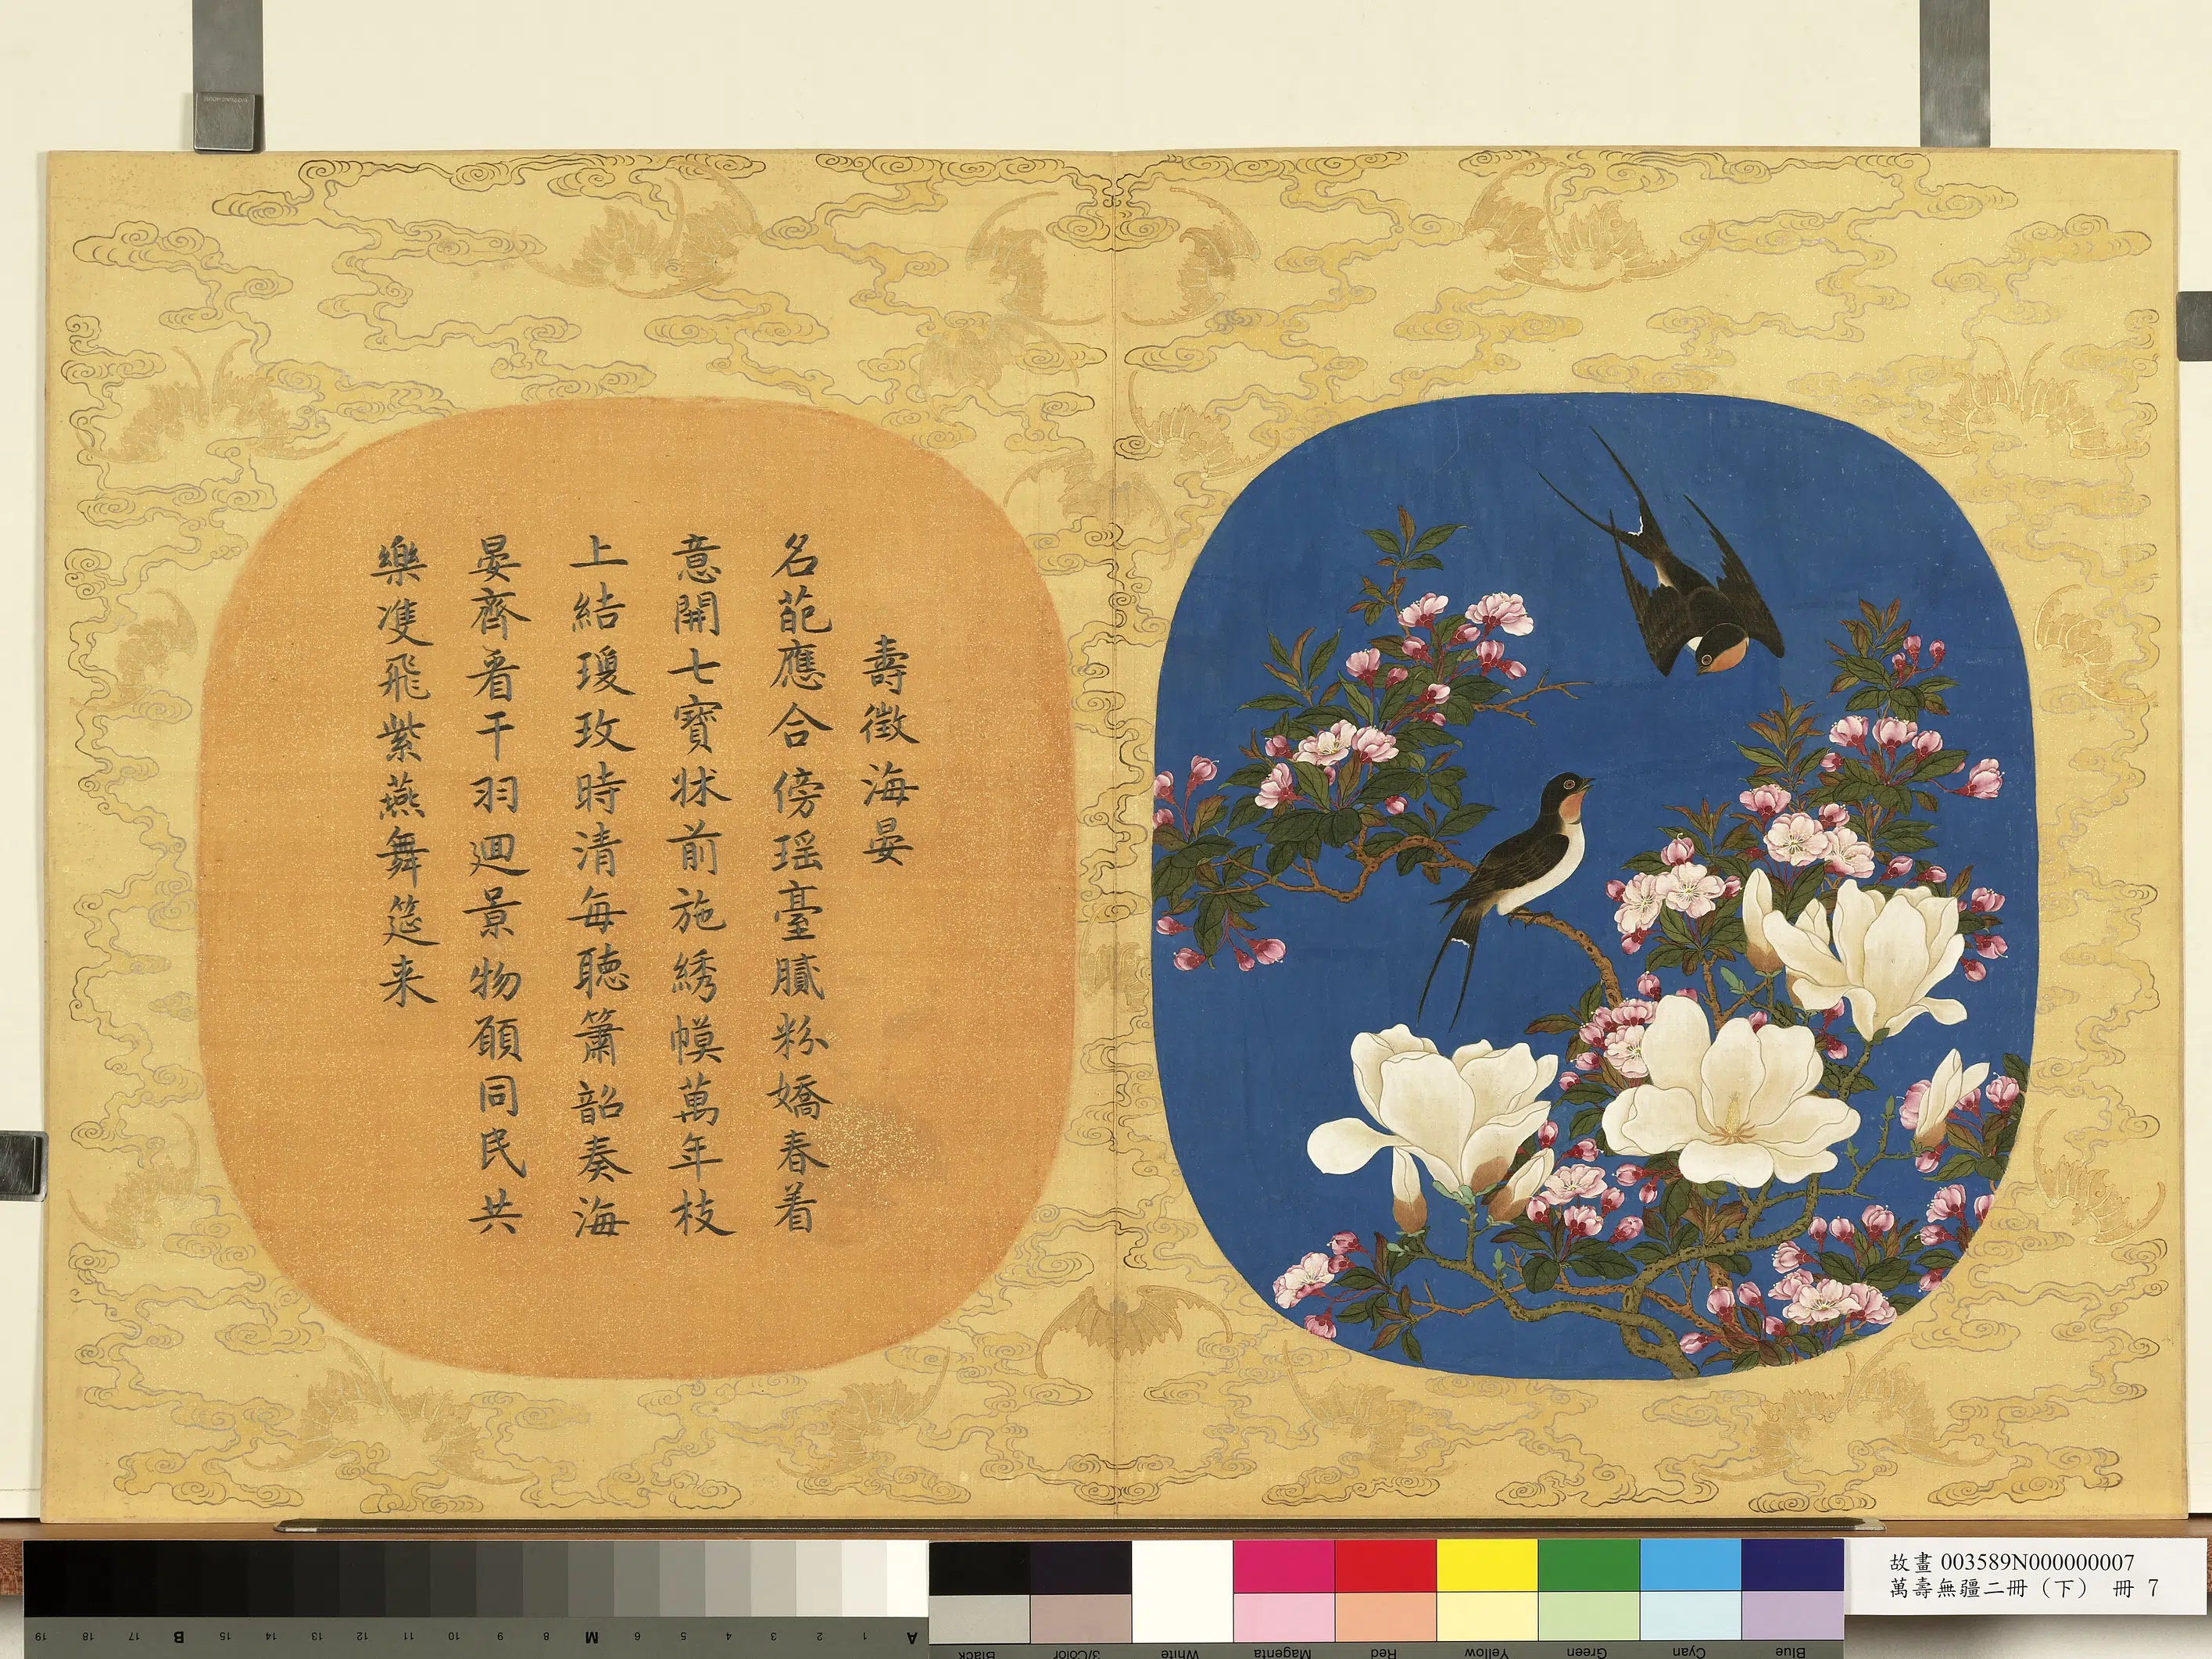 壽徵海晏
名葩應合傍瑶臺膩粉嬌春着
意開七寶牀前施綉幙萬年枝
上結瓊玫時清每聽簫韶奏海
晏齊看干羽迴景物願同民共
樂雙飛紫燕舞筵来
故畫 003589N000000007
萬壽無疆二冊（下） 冊 7
19 18 17 B 15 14 13 12 11 10 9 8 M 6 5 4 3 2 1 A
Black 3/Color White Magenta Red Yellow Green Cyan Blue